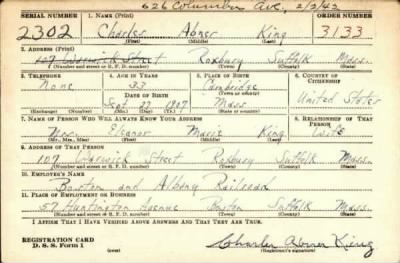 626 Columbus Ave, 2/2/42
SERIAL NUMBER 1. NAME (Print) ORDER NUMBER
2302 Charles Abner King 3133
(First) (Middle) (Last)
2. ADDRESS (Print)
107 Warwick Street Roxbury Suffolk Mass.
(Number and street or R. F. D. number) (Town) (County) (State)
3. TELEPHONE 4. AGE IN YEARS 5. PLACE OF BIRTH 6. COUNTRY OF CITIZENSHIP
None 33 Cambridge
DATE OF BIRTH (Town or county)
Sept 22 1907 Mass United States
(Exchange) (Number) (Mo.) (Day) (Yr.) (State or country)
7. NAME OF PERSON WHO WILL ALWAYS KNOW YOUR ADDRESS 8. RELATIONSHIP OF THAT PERSON
Mrs. Eleanor Marie King Wife
(Mr., Mrs., Miss) (First) (Middle) (Last)
9. ADDRESS OF THAT PERSON
107 Warwick Street Roxbury Suffolk Mass.
(Number and street or R. F. D. number) (Town) (County) (State)
10. EMPLOYER'S NAME
Boston and Albany Railroad
11. PLACE OF EMPLOYMENT OR BUSINESS
57 Huntington Avenue Boston Suffolk Mass.
(Number and street or R. F. D. number) (Town) (County) (State)
I AFFIRM THAT I HAVE VERIFIED ABOVE ANSWERS AND THAT THEY ARE TRUE.
REGISTRATION CARD
D. S. S. Form 1 (over) Charles Abner King
(Registrant's signature)